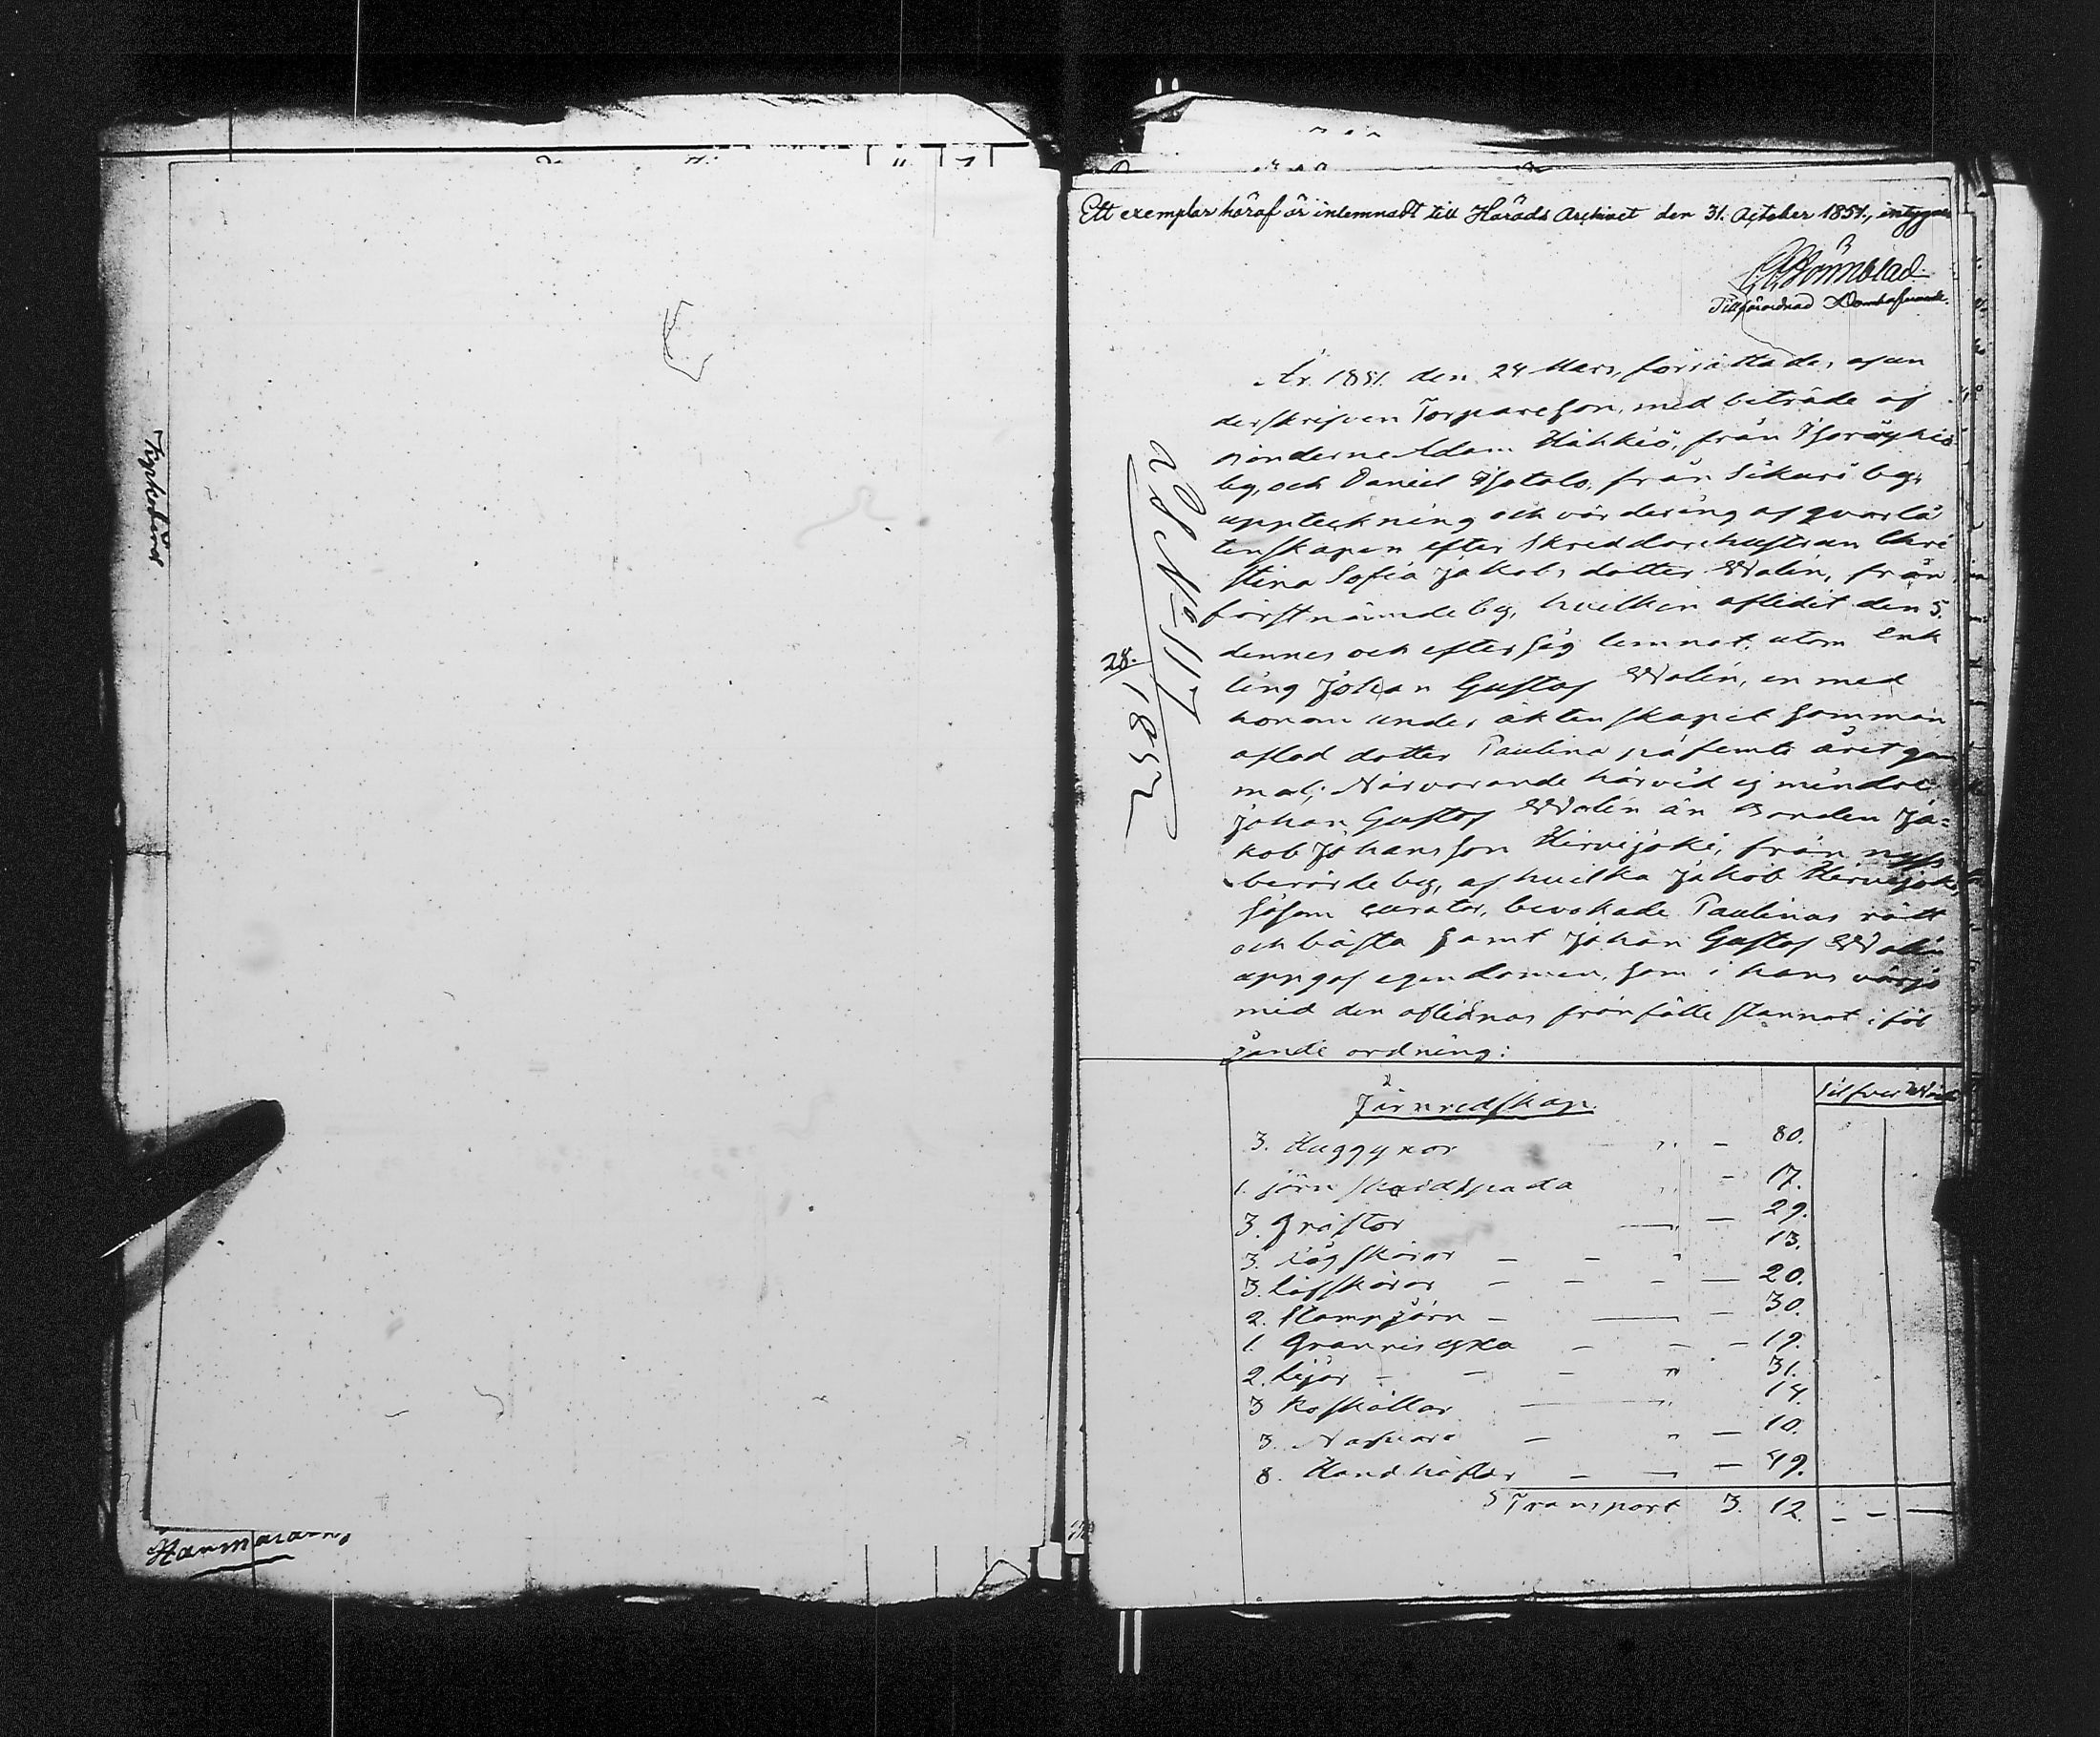 Ett exemplar häraf är inlemnadt till Härads Archivet den 31. October 1851., intygar
Tillförordnad Domhafvande.
År 1851. den 24 Mars, förrättade, af un
derskrifven Torpareson, med biträde af
Bönderne Adam Häkkiö, från
by, och Daniel från Sikuri by,
uppteckning och värdering af qvarlå
tenskapen efter Skreddarehustrun Chri
stina Sofia Jakobs dotter Walin, från
förstnämde by, hvilken aflidit den 5.
dennes och efter sig lemnat, utom Enk
ling Johan Gustaf Walin, en med
honom under äktenskapet samman
aflad dotter Paulina på femte året gam
mal; Närvarande härvid ej mindre
Johan Gustaf Walin än Bonden Ja=
kob Johansson Hirvijoki, från nyss
berörde by, af hvilka Jakob Hirvijoki,
såsom curator, bevakade Paulinas rätt
och bästa samt Johan Gustaf Walin
uppgaf egendomen, som i hans värjo
med den aflidnas frånfälle stannat i föl
jande ordning:
28.
2 Ex No 117
1852
Silfver
Järnredskap.
3. Huggyxor " — 80.
1. järn skodspada " — 17.
3. Gräftor — " — 29.
3. Rågskäror — — " 13.
3. Löfskäror — — — — 20.
2. Stampjärn — — — 30.
1. Granris yxa — — — 19.
2. Lijar — — — " 31.
3 Koskällor — " 14.
3. Nafvare — " — 10.
8. Handhäftor — — — 49.
Transport 3. 12. — — —